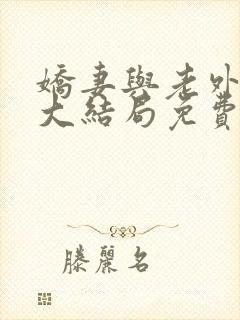 嬌妻與老外
大結局免費
滕麗名